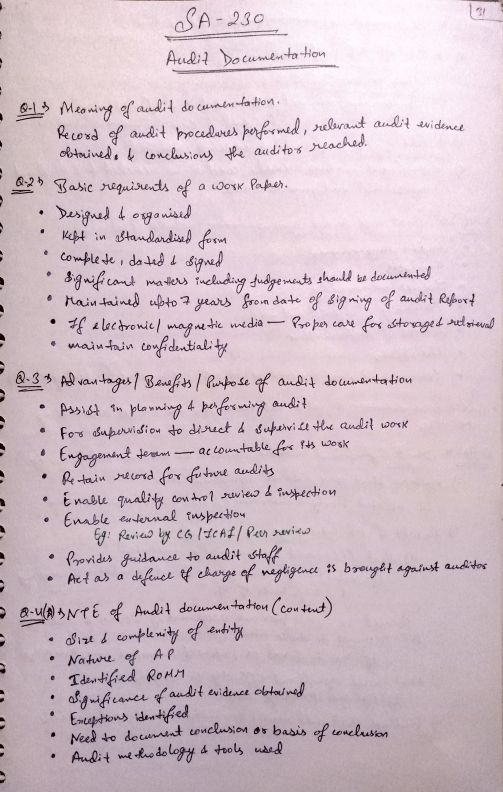 31
SA-230
Audit Documentation
Q-1 Meaning of audit documentation.
Record of audit procedures performed, relevant audit evidence
obtained, & conclusions the auditor reached.
Q-2 Basic requirents of a work Paper.
• Designed & organised
• Kept in standardised form
• complete, dated & signed
• Significant matters including judgements should be documented
• Maintained upto 7 years from date of signing of audit Report
• If electronic/ magnetic media — Proper care for storage & retrieval
• maintain confidentiality
Q-3 Advantages/ Benefits/ Purpose of audit documentation
• Assist in planning & performing audit
• For supervision to direct & supervise the audit work
• Engagement team — accountable for its work
• Retain record for future audits
• Enable quality control review & inspection
• Enable external inspection
Eg: Review by CG/ICAI/ Peer review
• Provides guidance to audit staff
• Act as a defence if charge of negligence is brought against auditor
Q-4(A) NTE of Audit documentation (content)
• Size & complexity of entity
• Nature of AP
• Identified ROMM
• Significance of audit evidence obtained
• Exceptions identified
• Need to document conclusion or basis of conclusion
• Audit methodology & tools used